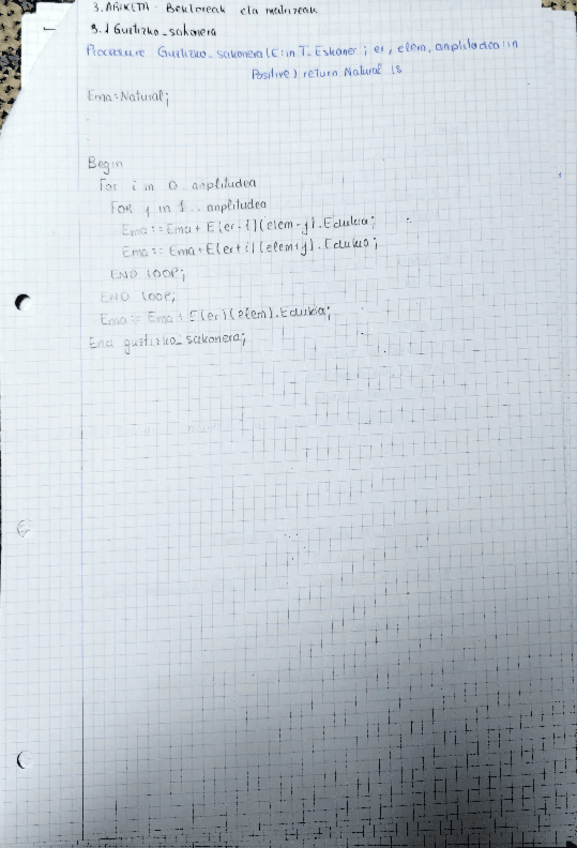 3. ARIKETA - Bektoreak eta matrizeak
3.1 Guztizko_sakonera
Procesure Guztizko_sakonera (E: in T_Eskaner ; er, elem, anplitudea: in
Positive) return Natural is
Ema: Natural;
Begin
For i in 0.. anplitudea
For j in 1.. anplitudea
Ema := Ema + E(er-i)(elem-j).Edukia;
Ema := Ema + E(er+i)(elem+j).Edukia;
END LOOP;
END LOOP;
Ema := Ema + E(er)(elem).Edukia;
End guztizko_sakonera;